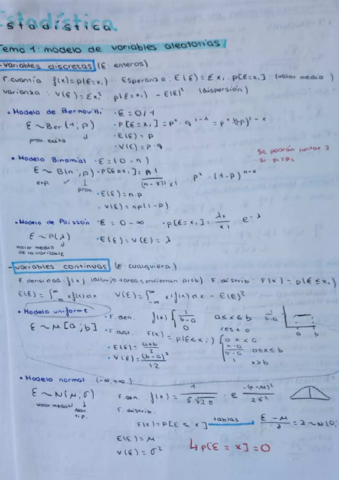 Estadística.
Tema 1: modelo de variables aleatorias
- variables discretas (ξ enteros)
F. cuantía f(x) = p(ξ = x) Esperanza: E(ξ) = Σxᵢ p[ξ = xᵢ] (valor medio)
varianza: V(ξ) = Σxᵢ² p(ξ = xᵢ) - E(ξ)² (dispersión)
• Modelo de Bernouilli · ξ = 0/1
ξ ~ Ber(1, p) · P[ξ = xᵢ] = pˣ · q¹⁻ˣ = pˣ (1-p)¹⁻ˣ
prob. éxito · E(ξ) = p
· V(ξ) = p · q
• Modelo Binomial · ξ = (0 - n)
ξ ~ B(n, p) · P[ξ = xᵢ] = n! / (n-x)! x! · pˣ · (1-p)ⁿ⁻ˣ
Se podrán sumar
si p₁ = p₂
exp. prob. · E(ξ) = n·p
· V(ξ) = n·p(1-p)
• Modelo de Poisson · ξ = 0 - ∞ · p[ξ = xᵢ] = λˣ / x! · e^-λ
ξ ~ P(λ) · E(ξ) = V(ξ) = λ
valor medio
de la variable
- variables continuas (ξ cualquiera)
F. densidad f(x) F. distrib. F(x) = p(ξ ≤ xᵢ)
E(ξ) = ∫ x f(x) dx V(ξ) = ∫ x² f(x) dx - E(ξ)²
• Modelo uniforme · F. den. f(x) { 1/(b-a) a ≤ x ≤ b
ξ ~ U [a, b] 0 resto a b
· F. dist. F(x) = p(ξ ≤ xᵢ) { 0 x < a
· E(ξ) = (a+b)/2 (x-a)/(b-a) a ≤ x ≤ b
· V(ξ) = (b-a)²/12 1 x > b
• Modelo normal (-∞, ∞)
ξ ~ N(μ, σ) F. den. f(x) = 1/(σ√2π) · e^-(x-μ)²/2σ²
valor medio desv. tip. F. distrib.
F(x) = P[ξ ≤ x] tablas (ξ - μ)/σ = z ~ N(0,
E(ξ) = μ
V(ξ) = σ² ↳ p[ξ = x] = 0